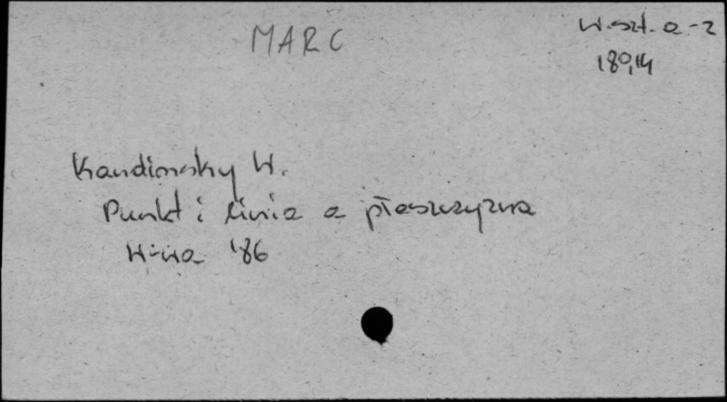 MARC
W. szt. a-z
180,14
Kandinsky W.
Punkt i linia a płaszczyzna
W-wa '86